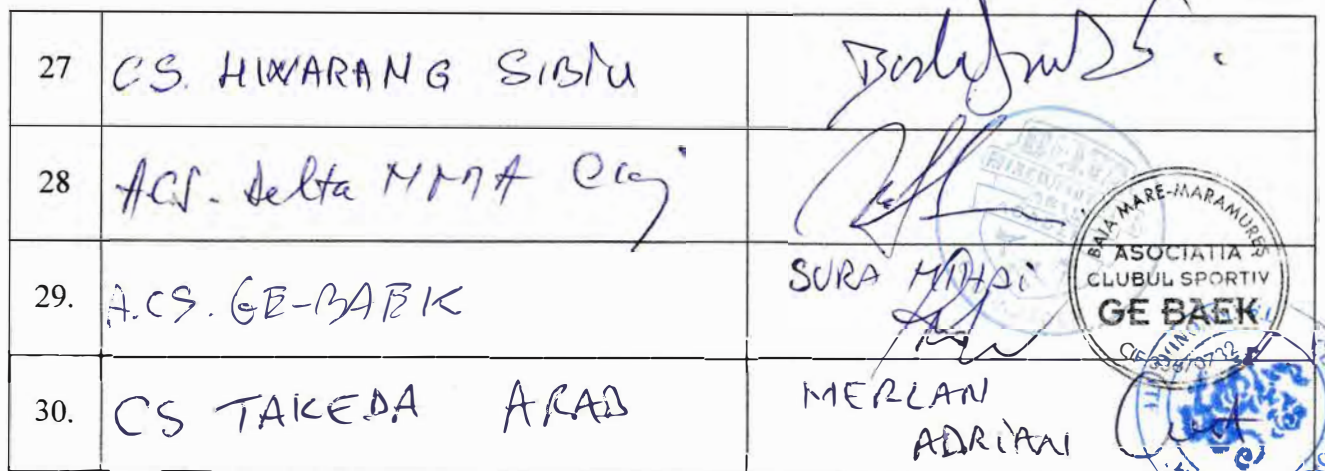 27 CS. HWARANG SIBIU
28 ACS. Delta MMA Cluj
29. A.CS. GE-BAEK SURA MIHAI
BAIA MARE-MARAMUREȘ
ASOCIATIA
CLUBUL SPORTIV
GE BAEK
30. CS TAKEDA ARAD MERLAN
ADRIAN